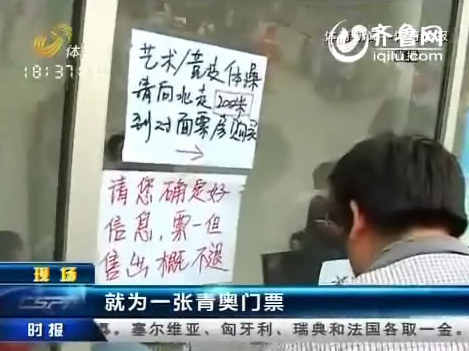 体育
18:37:
齐鲁网
iqilu.com
艺术/竞技体操
请向北走200米
到对面票房购买
→
请您确定好
信息，票一但
售出概不退
现场
就为一张青奥门票
时报
。塞尔维亚、匈牙利、瑞典和法国各取一金。